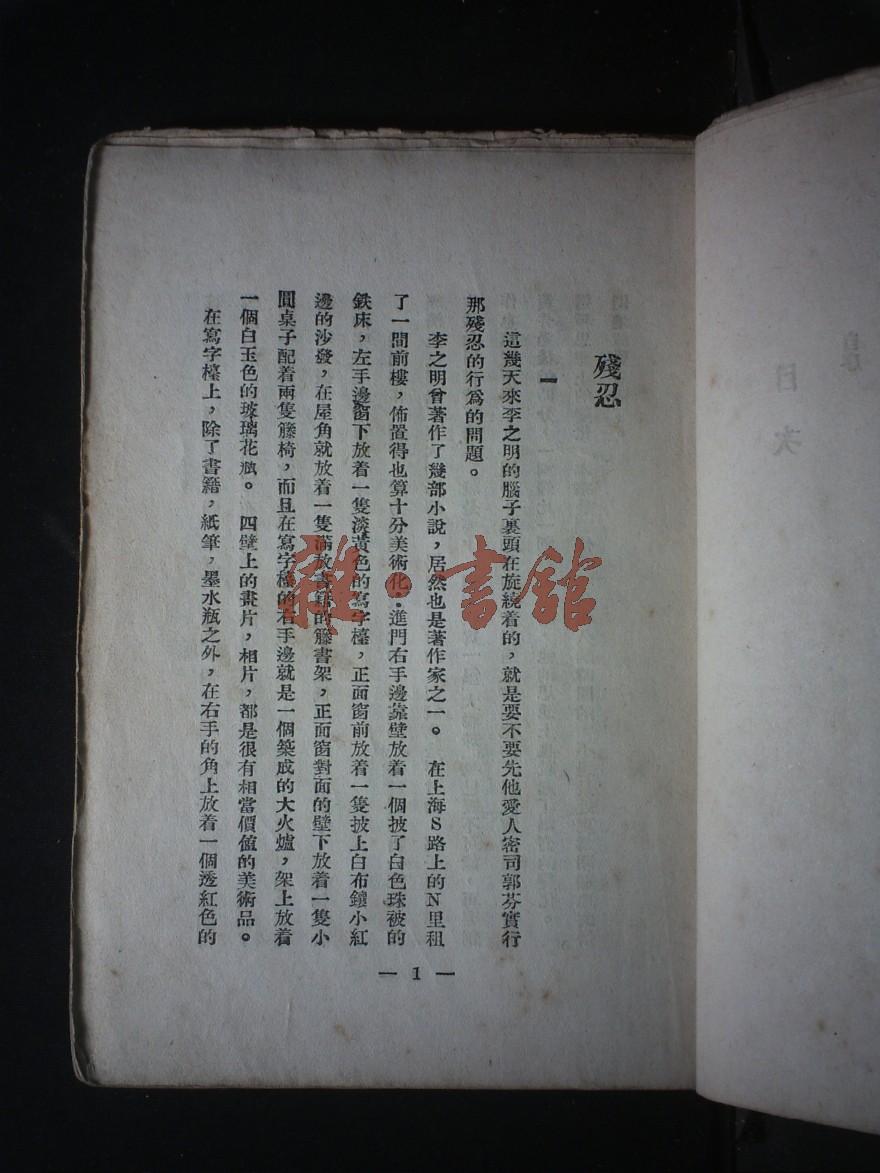 殘忍
一
這幾天來李之明的腦子裏頭在旋繞着的，就是要不要先他愛人密司郭芬實行
那殘忍的行爲的問題。
李之明曾著作了幾部小說，居然也是著作家之一。　在上海S路上的N里租
了一間前樓，佈置得也算十分美術化．進門右手邊靠壁放着一個披了白色珠被的
鉄床，左手邊窗下放着一隻淡黃色的寫字檯，正面窗前放着一隻披上白布鑲小紅
邊的沙發，在屋角就放着一隻滿放書籍的籐書架，正面窗對面的壁下放着一隻小
圓桌子配着兩隻籐椅，而且在寫字檯的右手邊就是一個築成的大火爐，架上放着
一個白玉色的玻璃花瓶。　四壁上的畫片，相片，都是很有相當價值的美術品。
在寫字檯上，除了書籍，紙筆，墨水瓶之外，在右手的角上放着一個透紅色的
— 1 —
雜·書館
目次